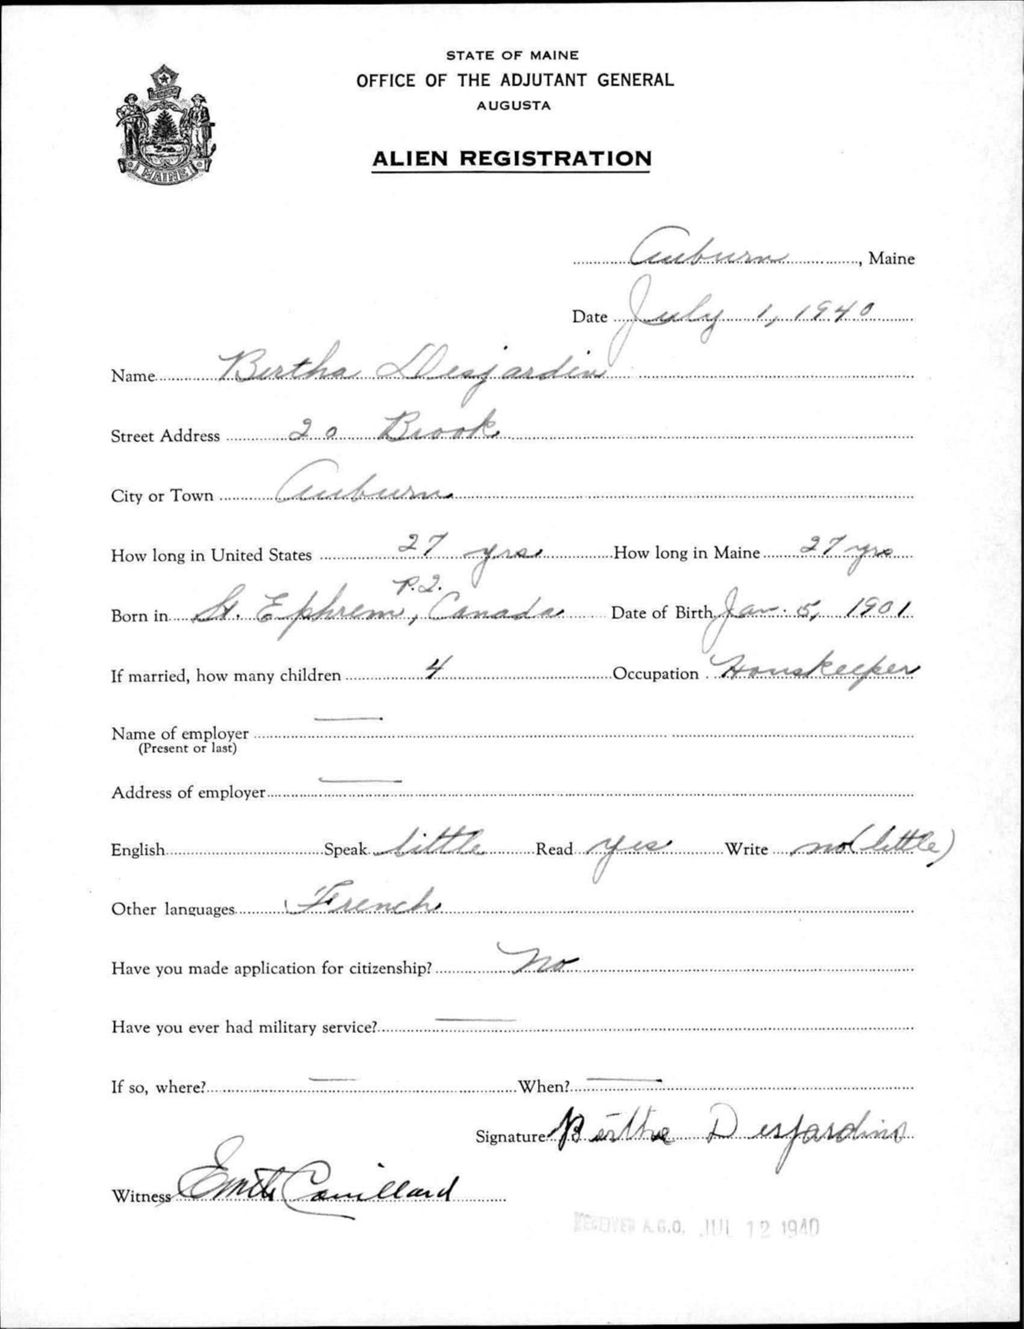 STATE OF MAINE
OFFICE OF THE ADJUTANT GENERAL
AUGUSTA
ALIEN REGISTRATION
MAINE
Auburn, Maine
Date July 1, 1940
Name Bertha Desjardins
Street Address 20 Brook
City or Town Auburn
How long in United States 27 yrs How long in Maine 27 yrs
P.Q.
Born in St. Ephrem, Canada Date of Birth Jan. 5, 1901
If married, how many children 4 Occupation Houskeeper
Name of employer —
(Present or last)
Address of employer —
English Speak little Read yes Write no (little)
Other languages French
Have you made application for citizenship? No
Have you ever had military service? —
If so, where? — When? —
Signature Bertha Desjardins
Witness Couillard
RECEIVED A.G.O. JUL 12 1940